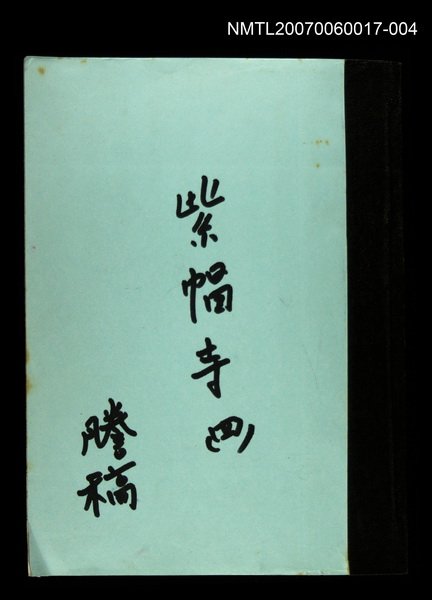 NMTL20070060017-004
紫帽寺(四)
謄稿